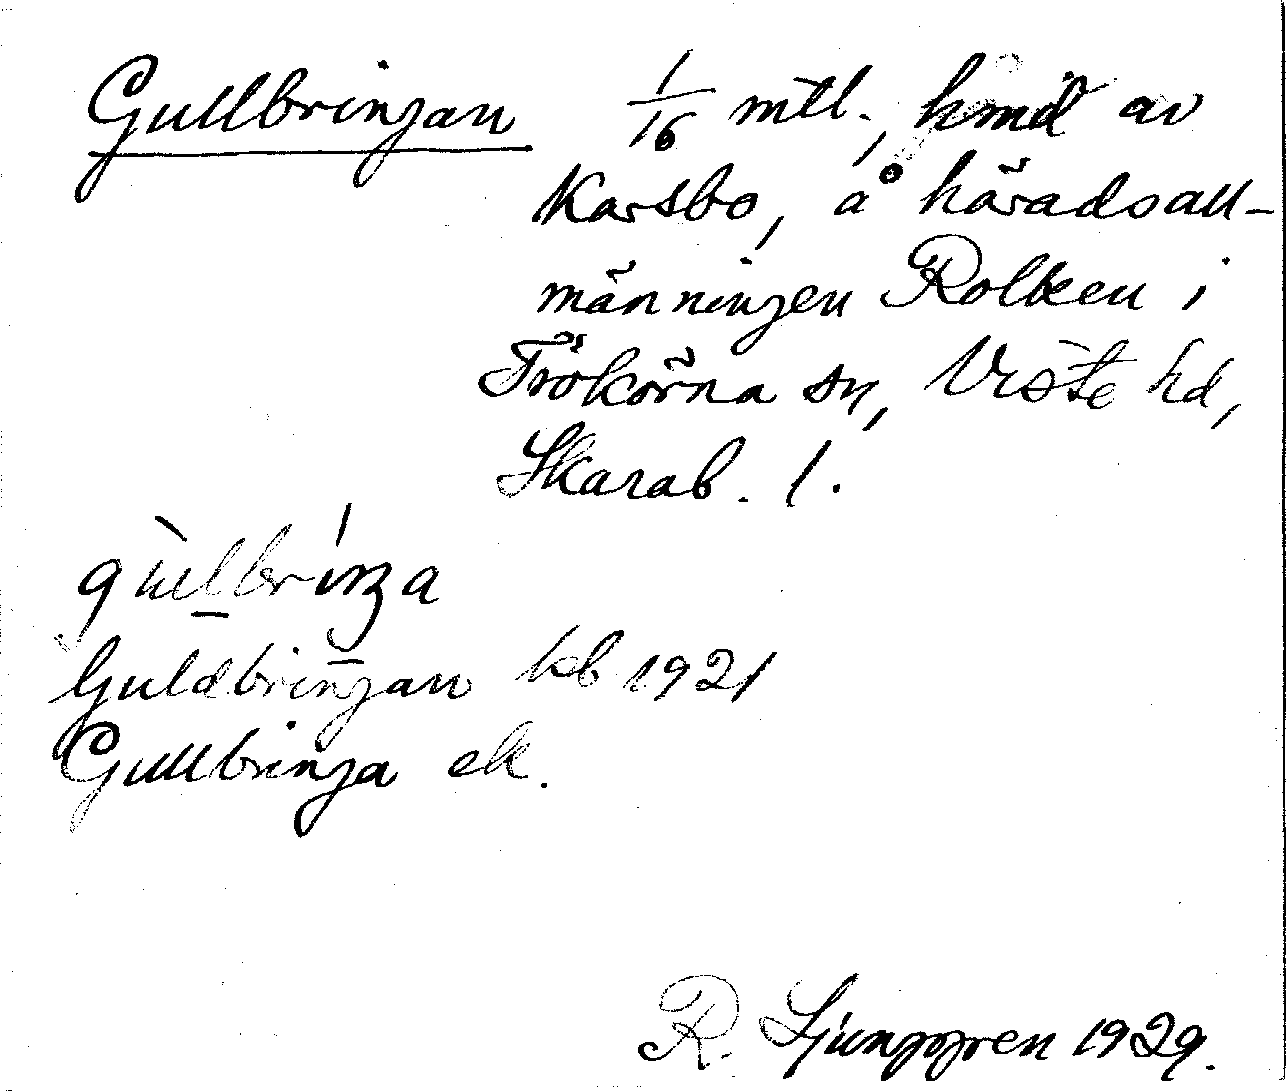 Gullbringan 1/16 mtl., hmd av
Karsbo, å häradsall-
männingen Rolken i
Trökörna sn, Viste hd,
Skarab. l.
gùlbríŋa
Guldbringan kb 1921
Gullbringa ek.
R. Ljunggren 1929.